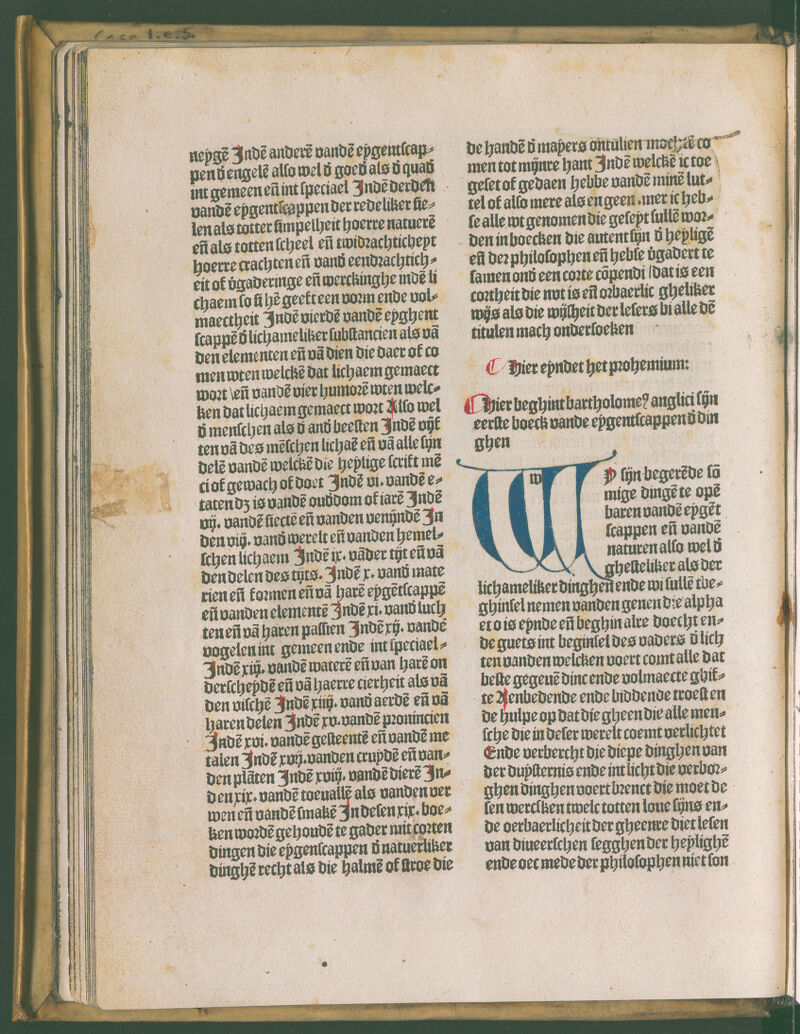 Caso 1.e.5.
neyge̅ Jnde̅ andere̅ vande̅ eygentscap⸗
pen d̕ engele̅ also wel d̕ goed̕ als d̕ quad̕
int gemeen en̅ int speciael Jnde̅ derden
vande̅ eygentscappen der redeliker sie⸗
len als totter simpelheit hoerre natuere̅
en̅ als totten scheel en̅ twidrachticheyt
hoerre crachten en̅ vand̕ eendrachtich⸗
eit of v̕gaderinge en̅ werckinghe inde̅ li
chaem so si he̅ geeft een vorm ende vol⸗
maectheit Jnde̅ vierde̅ vande̅ eyghent
scappe̅ d̕ lichameliker substancien als va̅
den elementen en̅ va̅ dien die daer of co
men wten welcke̅ dat lichaem gemaect
wort \en̅ vande̅ vier humore̅ wten welc⸗
ken dat lichaem gemaect wort Also wel
d̕ menschen als d̕ and̕ beesten Jnde̅ vijf
ten va̅ des me̅schen lichae̅ en̅ va̅ alle sijn
dele̅ vande̅ welcke̅ die heylige scrift me̅
ci of gewach of doet Jnde̅ vi. vande̅ e⸗
taten dz is vande̅ oud̕dom of iare̅ Jnde̅
vij. vande̅ siecte̅ en̅ vanden venijnde̅ Jn
den viij. vand̕ werelt en̅ vanden hemel⸗
schen lichaem Jnde̅ ix. va̅der tijt en̅ va̅
den delen des tijts. Jnde̅ x. vand̕ mate
rien en̅ formen en̅ va̅ hare̅ eyge̅tscappe̅
en̅ vanden elemente̅ Jnde̅ xi. vand̕ luch
ten en̅ va̅ haren passien Jnde̅ xij. vande̅
vogelen int gemeen ende int speciael⸗
Jnde̅ xiij. vande̅ watere̅ en̅ van hare̅ on
derscheyde̅ en̅ va̅ haerre cierheit als va̅
den vissche̅ Jnde̅ xiiij. vand̕ aerde̅ en̅ va̅
haren delen Jnde̅ xv. vande̅ prouincien
Jnde̅ xvi. vande̅ gesteente̅ en̅ vande̅ me
talen Jnde̅ xvij. vanden cruyde̅ en̅ van⸗
den pla̅ten Jnde̅ xviij. vande̅ diere̅ Jn⸗
den xix. vande̅ toeualle̅ als vanden ver
wen en̅ vande̅ smake̅ Jn desen xix. boe⸗
ken worde̅ gehoude̅ te gader mit corten
dingen die eygenscappen d̕ natuerliker
dinghe̅ recht als die halme̅ of stroe die
de hande̅ d̕ mayers ontulien mochte̅ co
men tot mijnre hant Jnde̅ welcke̅ ic toe
geset of gedaen hebbe vande̅ mine̅ lut⸗
tel of also mere als en geen .mer ic heb⸗
se alle wt genomen die geseyt sulle̅ wor⸗
den in boecken die autent sijn d̕ heylige̅
en̅ der philosophen en̅ hebse v̕gadert te
samen ond̕ een corte co̅pendi /dat is een
cortheit die not is en̅ orbaerlic gheliker
wijs als die wijsheit der lesers bi alle de̅
titulen mach ondersoeken
⸿ Hier eyndet het prohemium:
⸿ Hier beghint bartholomeꝰ anglici sijn
eerste boeck vande eygentscappen d̕ din
ghen
W w
Y sijn begere̅de so̅
mige dinge̅ te ope̅
baren vande̅ eyge̅t
scappen en̅ vande̅
naturen also wel d̕
ghesteliker als der
lichameliker dinghen ende wi sulle̅ tbe⸗
ghinsel nemen vanden genen die alpha
et o is eynde en̅ beghin alre doecht en⸗
de guets int beginsel des vaders d̕ lich
ten vanden welcken voert comt alle dat
beste gegeue̅ dinc ende volmaecte ghif⸗
te Aenbedende ende biddende troest en
de hulpe op dat die gheen die alle men⸗
sche die in deser werelt coemt verlichtet
Ende verbercht die diepe dinghen van
der duysternis ende int licht die verbor⸗
ghen dinghen voert brenct die moet de
sen wercsken twelc totten loue sijns en⸗
de oerbaerlicheit der gheenre diet lesen
van diueerschen segghen der heylighe̅
ende oec mede der philosophen niet son